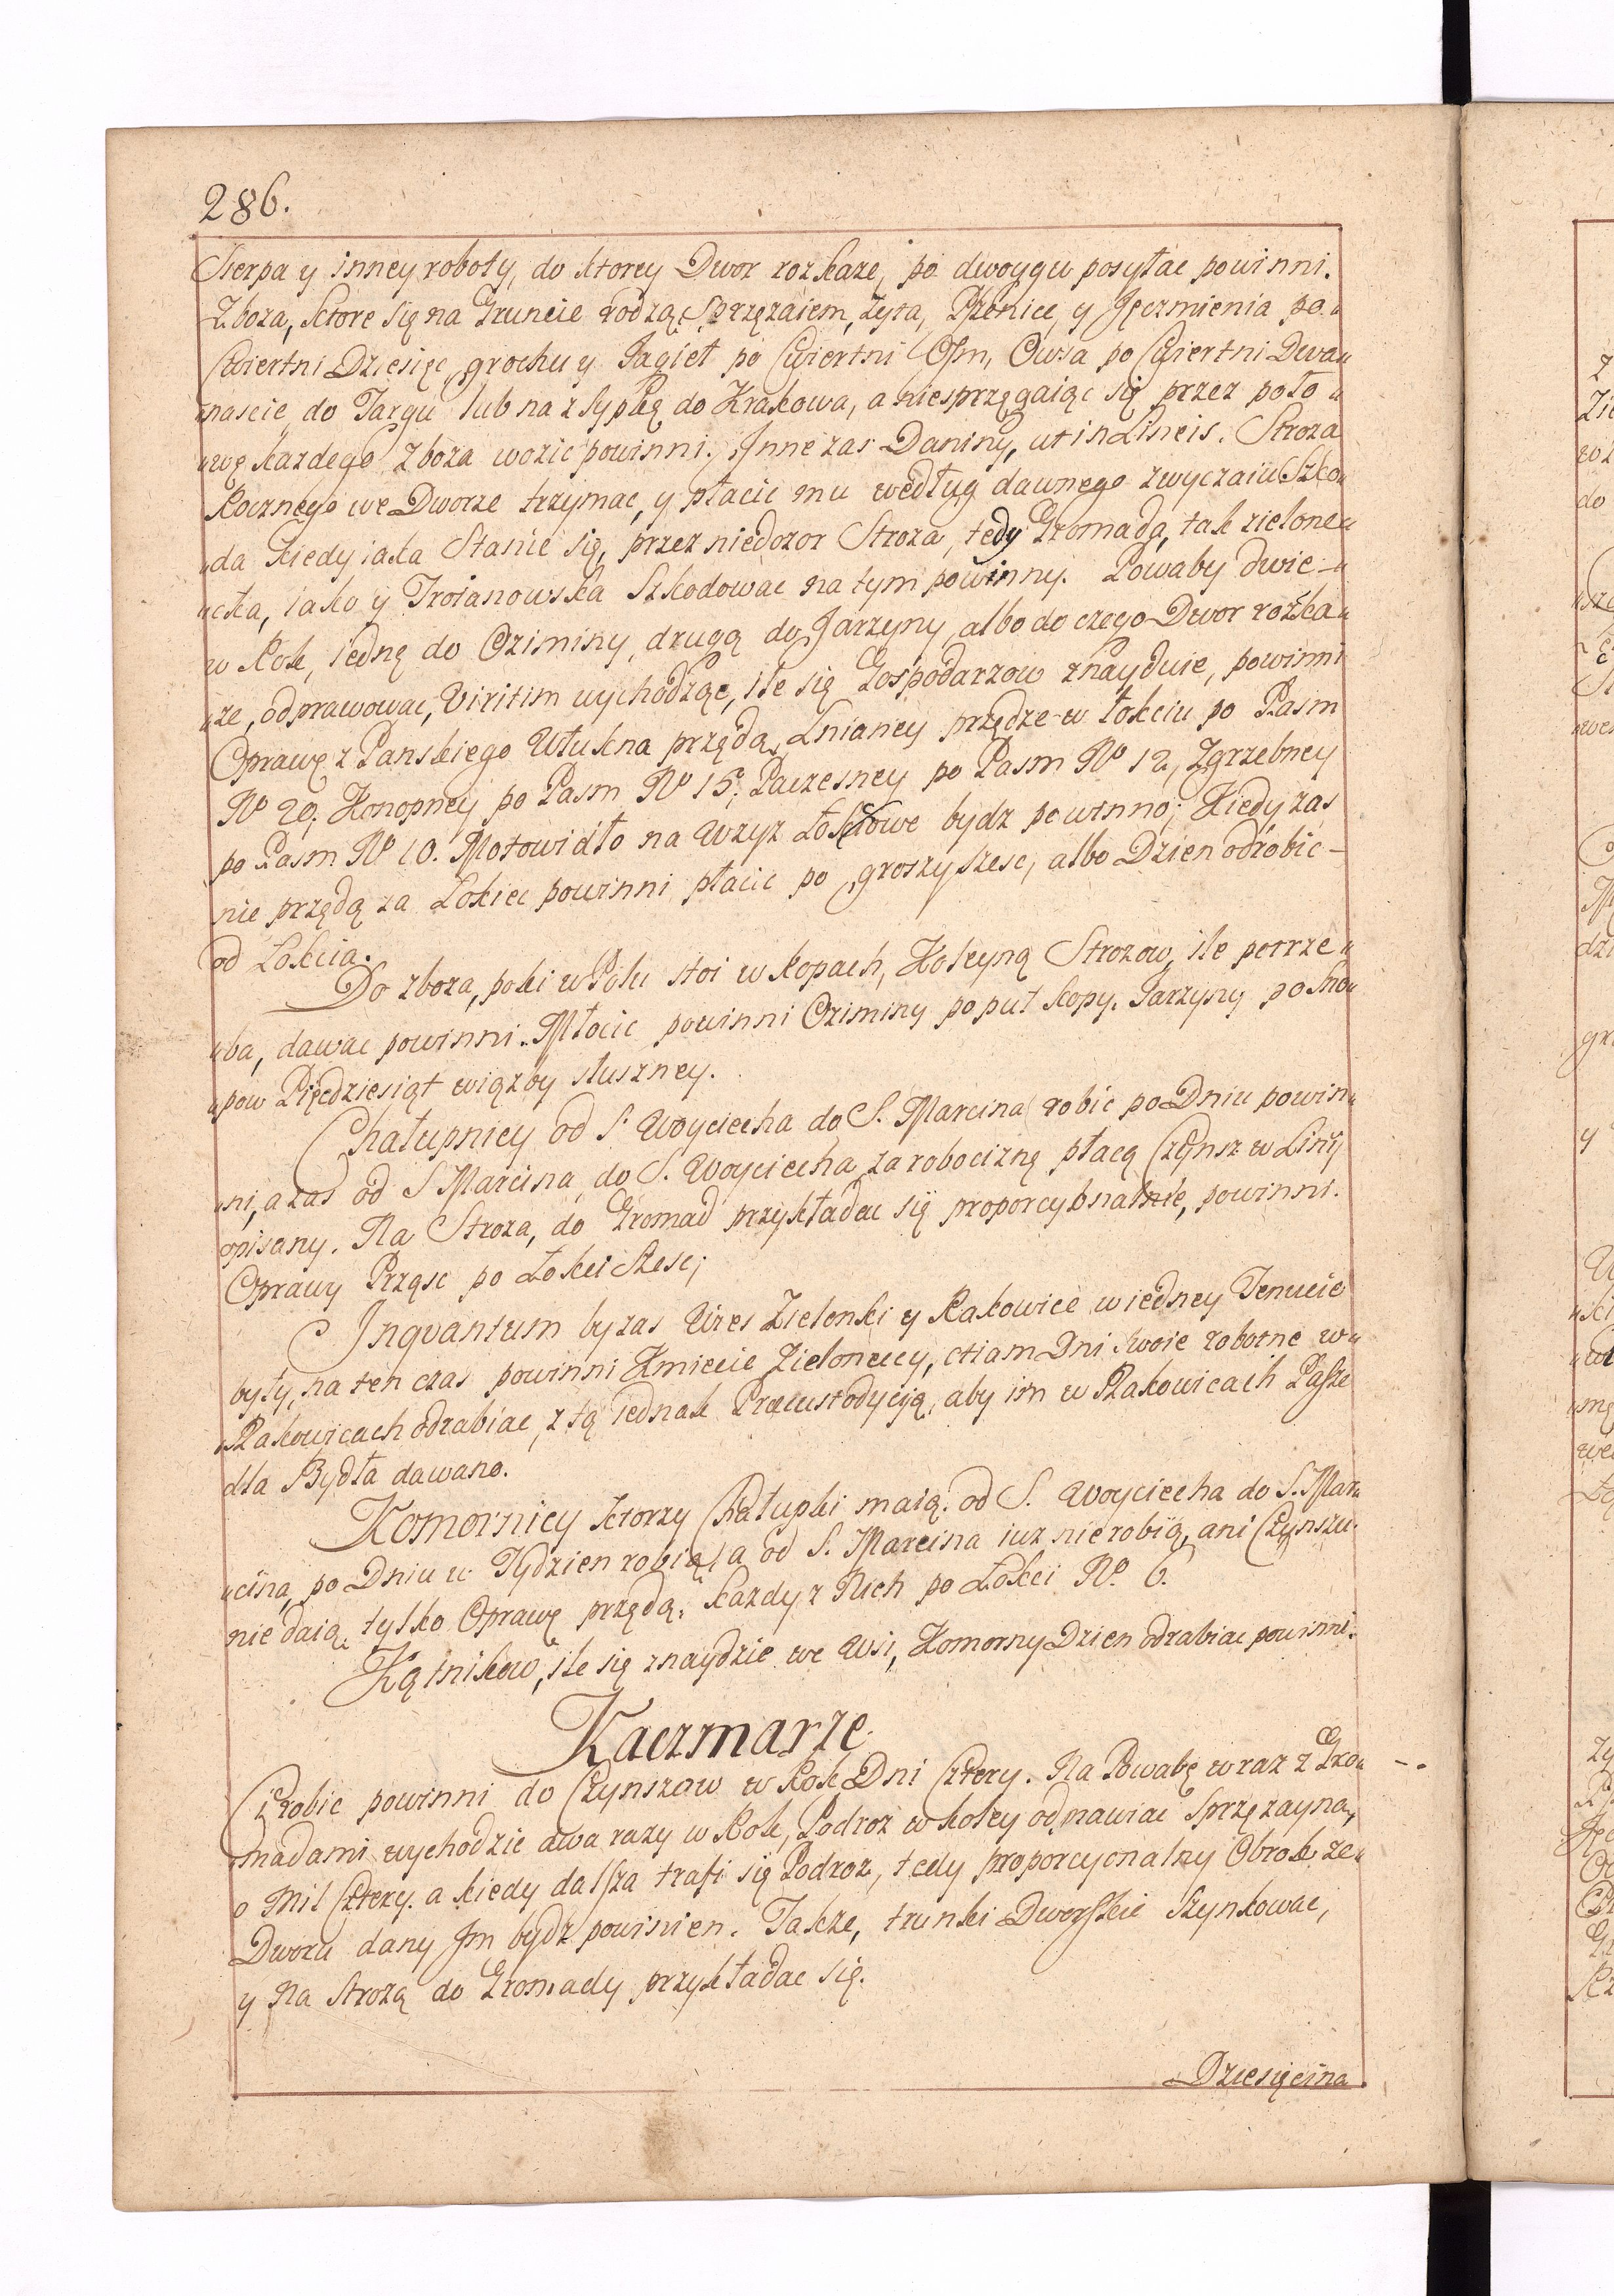 286.
Sierpa y inney roboty, do ktorey Dwor rozkaze, po dwoygu posyłac powinni.
Zboza, ktore się na Gruncie rodzą Sprzęzaiem, Zyta, Pszenice, y Jęczmienia po„
Cwiertni Dziesięc, grochu y Jagieł po Cwiertni Osm, Owsa po Cwiertni Dwa„
„nascie, do Targu lub na zsypkę do Krakowa, a niesprzęgaiąc się przez poło„
„wę kazdego Zboza wozic powinni. Inne zas Daniny, ut in Lineis. Stroza
Rocznego we Dworze trzymac, y płacic mu według dawnego zwyczaiu Szko„
„da kiedy iaka Stanie się, przez niedozor Stroza, tedy Gromada, tak zielone„
„cka, iako y Troianowska Szkodowac na tym powinny. Powaby dwie„
w Rok, iedną do Oziminy, drugą do Jarzyny, albo do czego Dwor rozka„
„ze, odprawowac, Viritim wychodząc, ile się Gospodarzow znayduie, powinni
Oprawę z Panskiego Włukna przędą, Lnianey przędze w łokciu po Pasm
No 20, Konopney po Pasm No 15, Paczesney po Pasm No 12, Zgrzebney
po Pasm No 10. Motowidło na Wzyz Łokciowe bydz powinno; Kiedy zas
nie przędą za Łokiec powinni płacic po groszy szesc, albo Dzien odrobic
od Łokcia.
Do zboza, poki w Polu stoi w kopach, Koleyną Strozow, ile potrze„
„ba, dawac powinni. Młocic powinni Oziminy po puł kopy. Jarzyny po sno„
„pow Pięcdziesiąt więzby słuszney.
Chałupnicy od S. Woyciecha do S. Marcina robic po Dniu powin„
„ni, a zas od S Marcina, do S. Woyciecha za robociznę płacą Czynsz w Linij
opisany. Na Stroza, do Gromad przykładac się proporcyonalnie, powinni.
Oprawy Prząsc po Łokci szesc;
Inqvantum by zas Wies Zielonki y Rakowice w iedney Tenucie
były, na ten czas powinni Kmiecie Zielonccy, etiam Dni swoie robotne w„
„Rakowicach odrabiac, z tą iednak Præcustodycyą, aby im w Rakowicach Pasze
dla Bydła dawano.
Komornicy ktorzy Chałupki maią. od S. Woyciecha do S. Mar„
„cina, po Dniu w Tydzien robią, a od S. Marcina iuz nie robią, ani Czynszu
nie daią, tylko Oprawę przędą, kazdy z Nich po Łokci No. 6.
Kątnikow, ile się znaydzie we Wsi, Komorny Dzien odrabiac powinni.
Kaczmarze.
Robic powinni do Czynszow w Rok Dni Cztery. Na Powabę wraz z Gro„
„madami wychodzic dwa razy w Rok, Podroz w koley odprawiac Sprzęzayną,
o Mil Cztery. a kiedy dalsza trafi się Podroz, tedy proporcyonalny Obrok ze„
Dworu dany Im bydz powinien. Takze, trunki Dworskie Szynkowac,
y na Strozą do Gromady przykładac się.
Dziesięcina